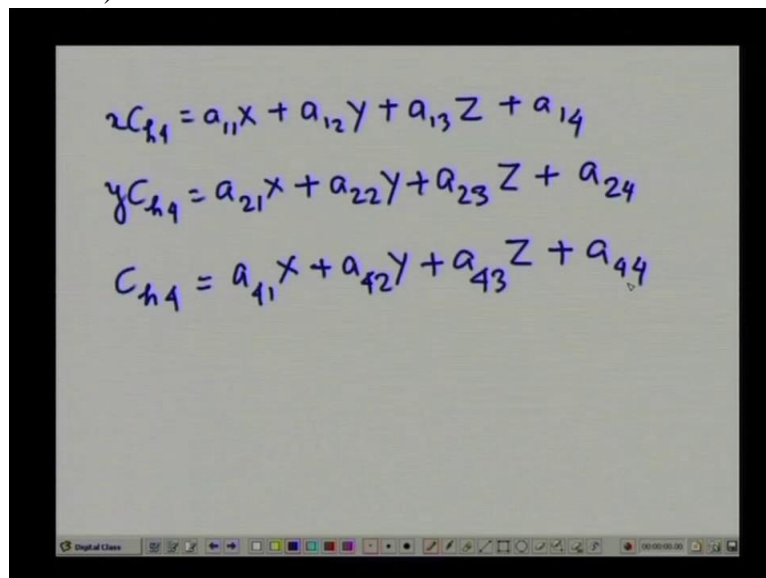 xC_{h4} = a_{11}X + a_{12}Y + a_{13}Z + a_{14}
yC_{h4} = a_{21}X + a_{22}Y + a_{23}Z + a_{24}
C_{h4} = a_{41}X + a_{42}Y + a_{43}Z + a_{44}
Digital Class 00:00:00.00